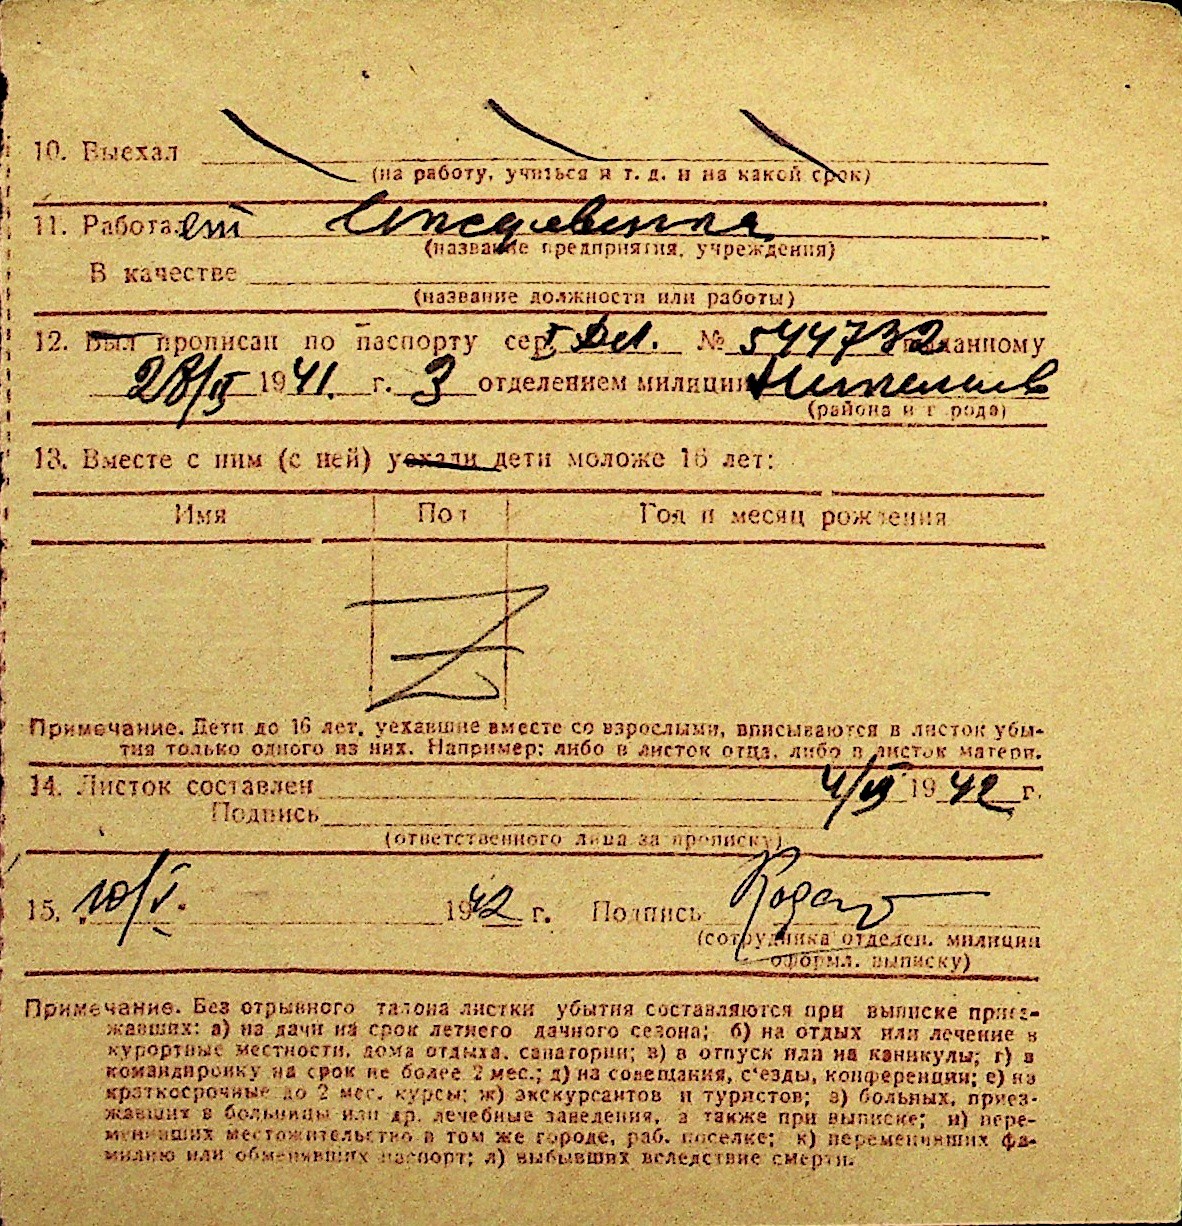 10. Выехал
(на работу, учиться и т. д. и на какой срок)
11. Работает Иждивенка
(название предприятия, учреждения)
В качестве
(название должности или работы)
12. Был прописан по паспорту сер. № 544732 выданному
28/II 1941. г. 3 отделением милиции
(района и города)
13. Вместе с ним (с ней) уехали дети моложе 16 лет:
Имя Пол Год и месяц рождения
Z
Примечание. Дети до 16 лет, уехавшие вместе со взрослыми, вписываются в листок убы-
тия только одного из них. Например: либо в листок отца, либо в листок матери.
14. Листок составлен 1942 г.
Подпись
(ответственного лица за прописку)
15. 10/V. 1942 г. Подпись
(сотрудника отделен. милиции
оформл. выписку)
Примечание. Без отрывного талона листки убытия составляются при выписке приез-
жавших: а) на дачи на срок летнего дачного сезона; б) на отдых или лечение в
курортные местности, дома отдыха, санатории; в) в отпуск или на каникулы; г) в
командировку на срок не более 2 мес.; д) на совещания, с'езды, конференции; е) на
краткосрочные до 2 мес. курсы; ж) экскурсантов и туристов; з) больных, приез-
жавших в больницы или др. лечебные заведения, а также при выписке; и) пере-
менивших местожительство в том же городе, раб. поселке; к) переменивших фа-
милию или обменявших паспорт; л) выбывших вследствие смерти.